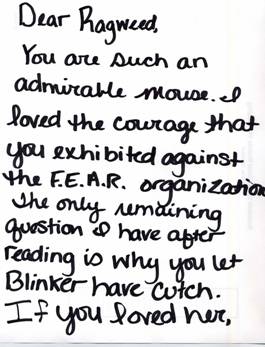 Dear Ragweed,
You are such an
admirable mouse. I
loved the courage that
you exhibited against
the F.E.A.R. organization
The only remaining
question I have after
reading is why you let
Blinker have Clutch.
If you loved her,